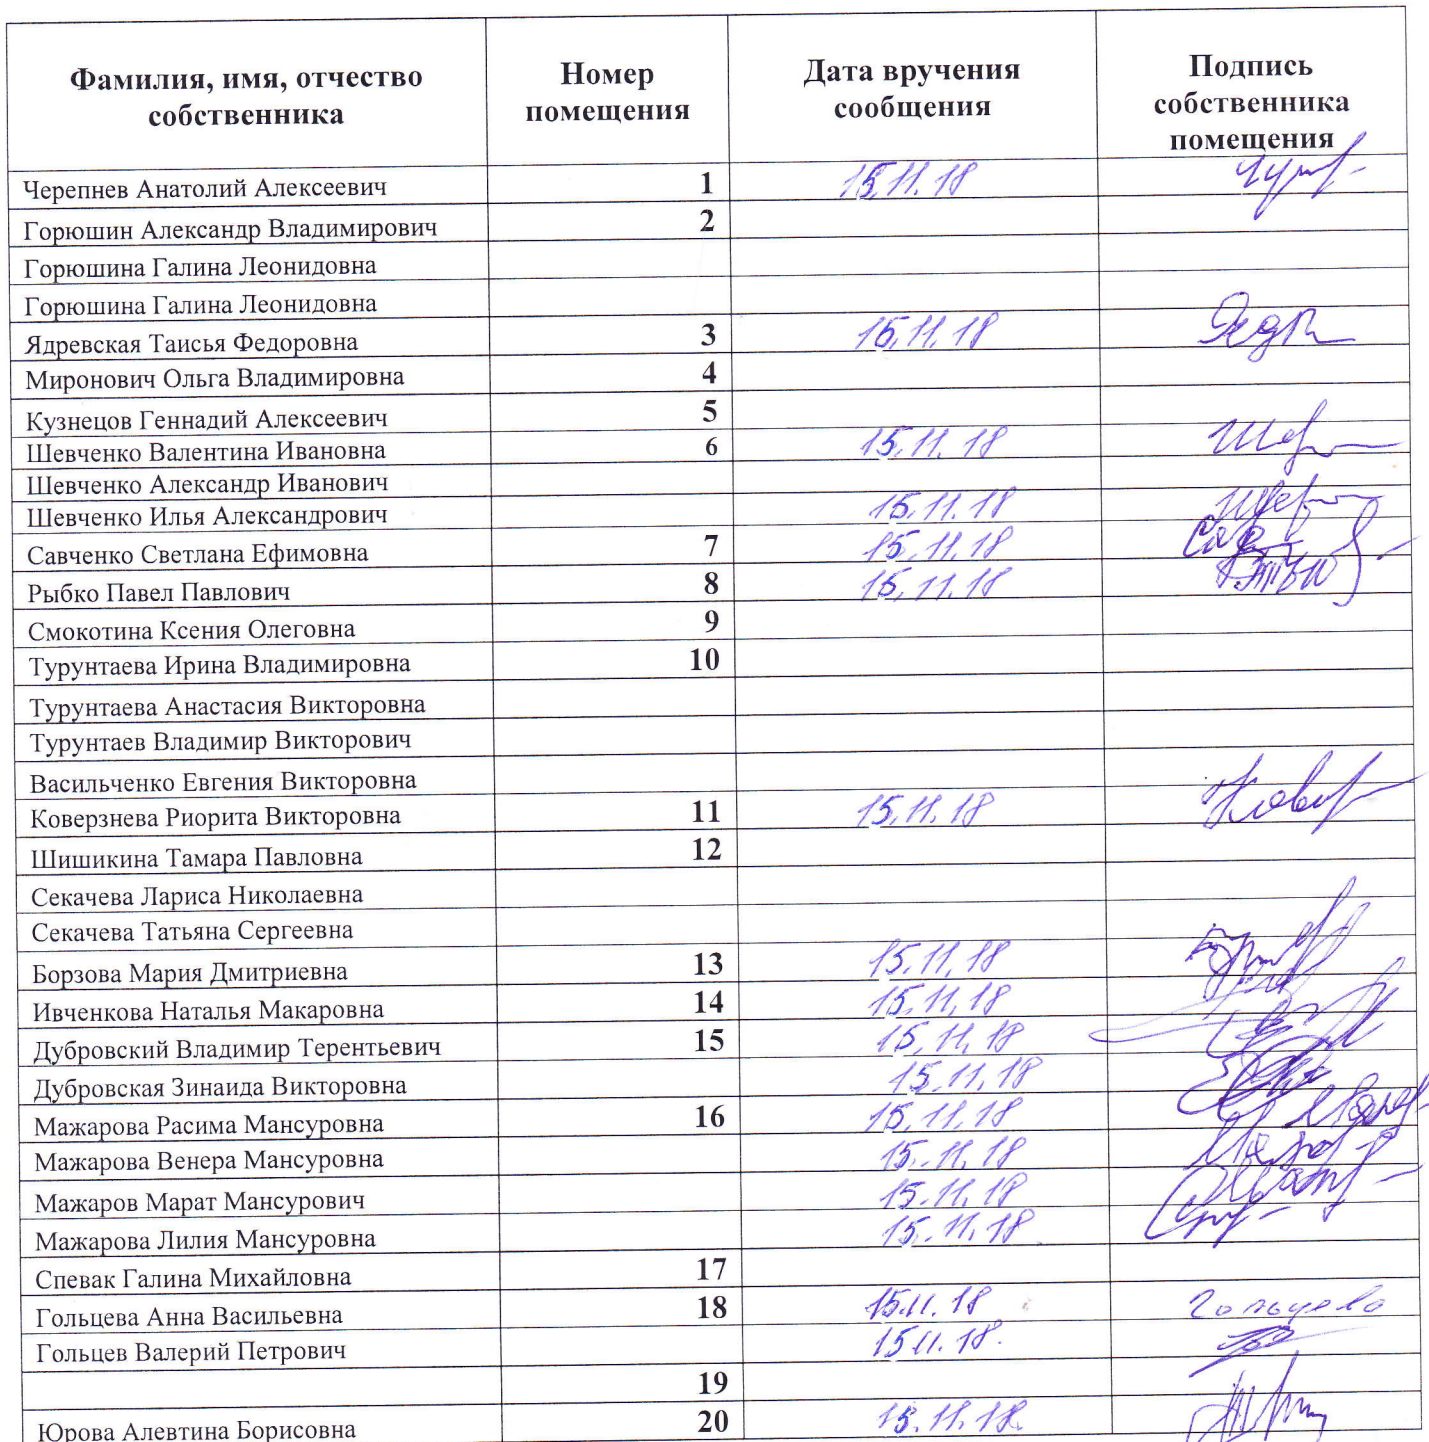 Фамилия, имя, отчество собственника Номер помещения Дата вручения сообщения Подпись собственника помещения
Черепнев Анатолий Алексеевич 1 15.11.18
Горюшин Александр Владимирович 2
Горюшина Галина Леонидовна
Горюшина Галина Леонидовна
Ядревская Таисья Федоровна 3 15.11.18
Миронович Ольга Владимировна 4
Кузнецов Геннадий Алексеевич 5
Шевченко Валентина Ивановна 6 15.11.18
Шевченко Александр Иванович
Шевченко Илья Александрович 15.11.18
Савченко Светлана Ефимовна 7 15.11.18
Рыбко Павел Павлович 8 15.11.18
Смокотина Ксения Олеговна 9
Турунтаева Ирина Владимировна 10
Турунтаева Анастасия Викторовна
Турунтаев Владимир Викторович
Васильченко Евгения Викторовна
Коверзнева Риорита Викторовна 11 15.11.18
Шишикина Тамара Павловна 12
Секачева Лариса Николаевна
Секачева Татьяна Сергеевна
Борзова Мария Дмитриевна 13 15.11.18
Ивченкова Наталья Макаровна 14 15.11.18
Дубровский Владимир Терентьевич 15 15.11.18
Дубровская Зинаида Викторовна 15.11.18
Мажарова Расима Мансуровна 16 15.11.18
Мажарова Венера Мансуровна 15.11.18
Мажаров Марат Мансурович 15.11.18
Мажарова Лилия Мансуровна 15.11.18
Спевак Галина Михайловна 17
Гольцева Анна Васильевна 18 15.11.18 Гольцева
Гольцев Валерий Петрович 15.11.18.
19
Юрова Алевтина Борисовна 20 15.11.18.